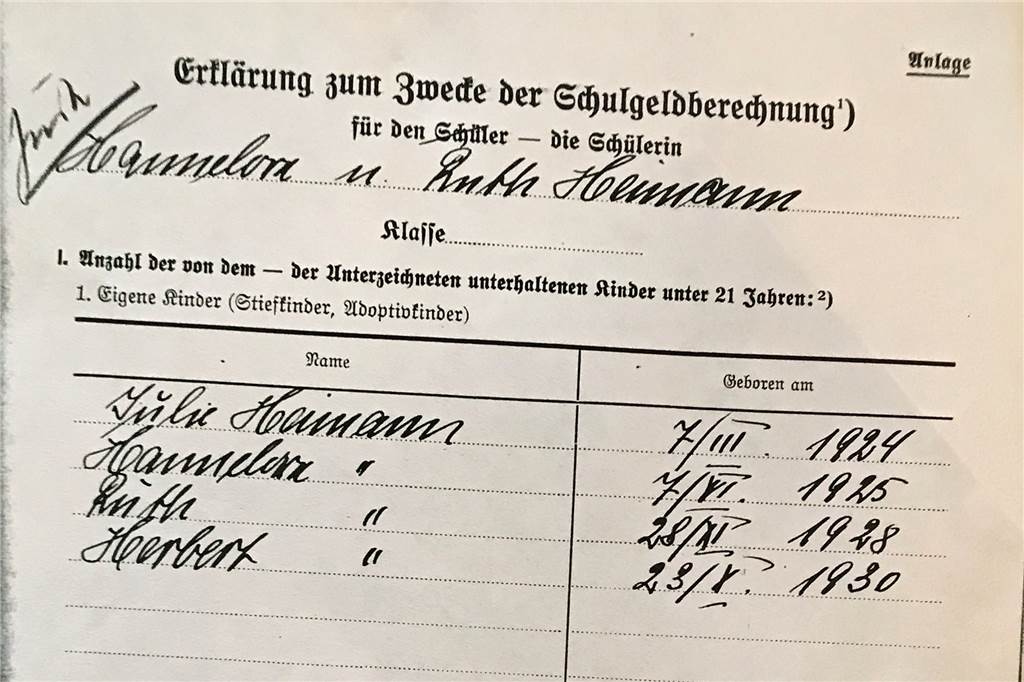 Anlage
Erklärung zum Zwecke der Schulgeldberechnung¹)
für den Schüler — die Schülerin
Hannelore u. Ruth Heimann
Klasse
I. Anzahl der von dem — der Unterzeichneten unterhaltenen Kinder unter 21 Jahren: ²)
1. Eigene Kinder (Stiefkinder, Adoptivkinder)
Name Geboren am
Julie Heimann 7/III. 1924
Hannelore " 7/VI. 1925
Ruth " 28/XI 1928
Herbert " 23/V. 1930